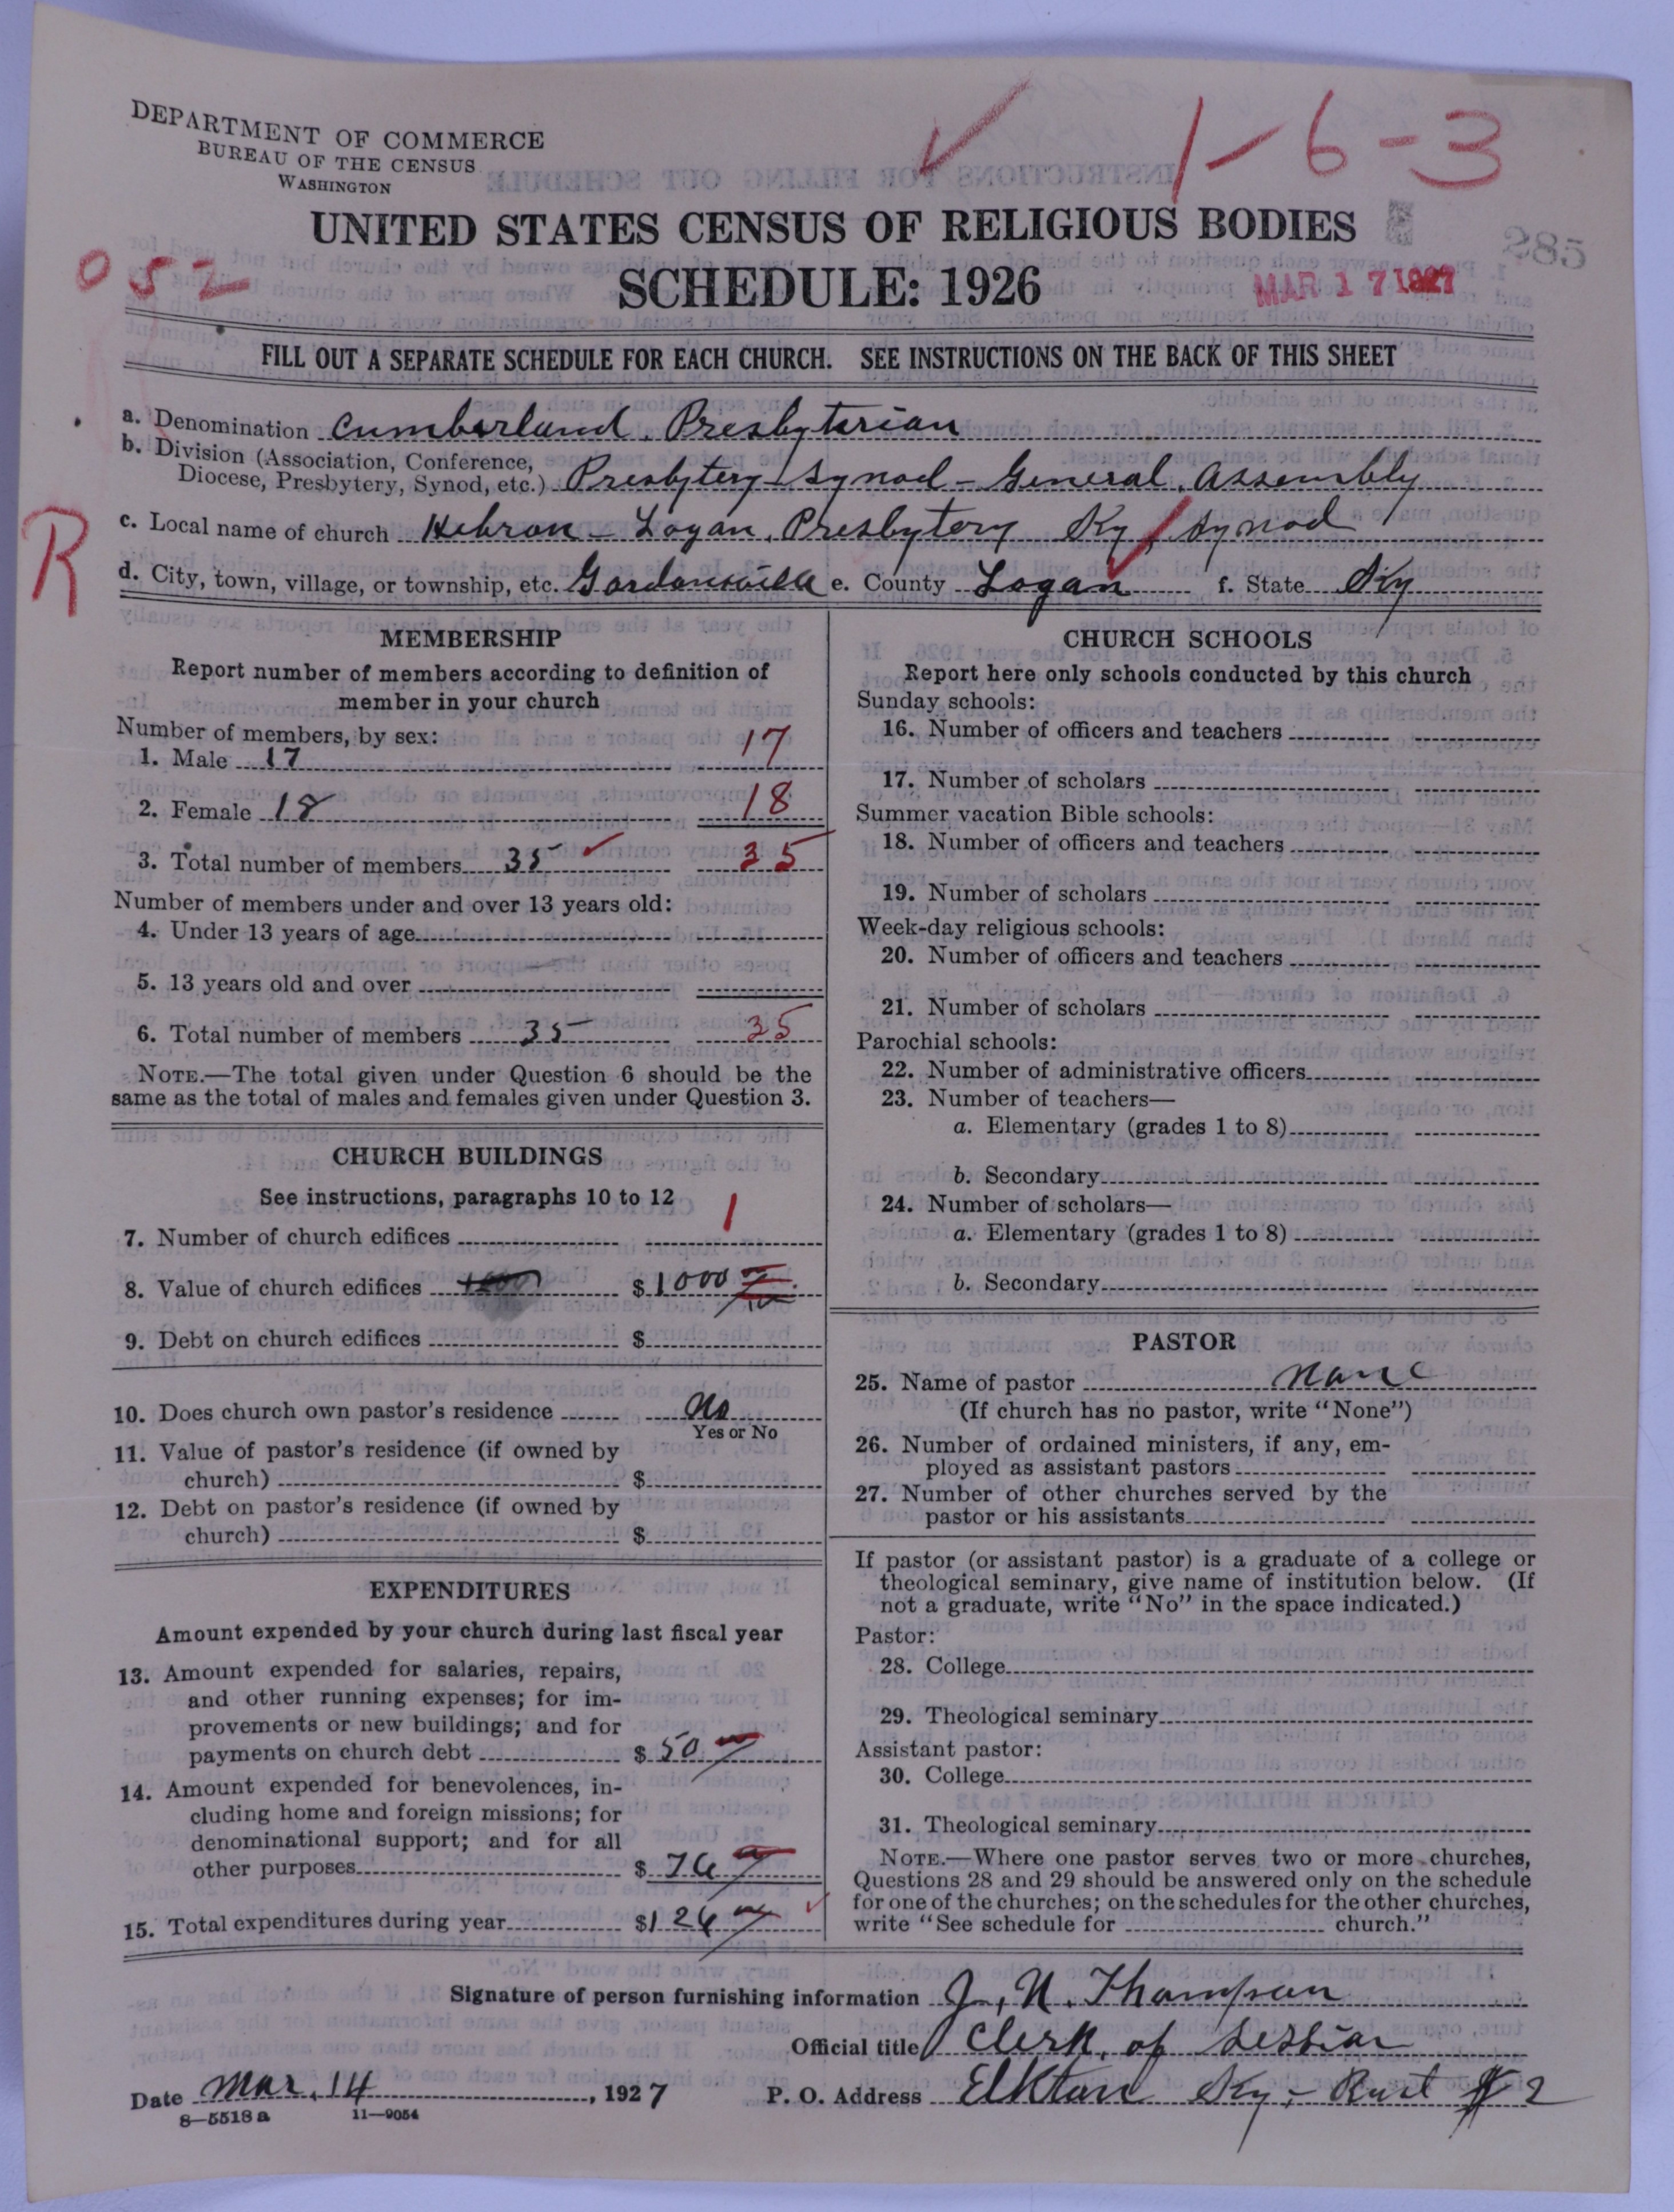 DEPARTMENT OF COMMERCE
BUREAU OF THE CENSUS
WASHINGTON
1-6-3
UNITED STATES CENSUS OF RELIGIOUS BODIES
285
052
SCHEDULE: 1926
MAR 17 1927
FILL OUT A SEPARATE SCHEDULE FOR EACH CHURCH. SEE INSTRUCTIONS ON THE BACK OF THIS SHEET
a. Denomination Cumberland Presbyterian
b. Division (Association, Conference,
Diocese, Presbytery, Synod, etc.) Presbytery-Synod-General Assembly
R
c. Local name of church Hebron - Logan Presbytery Ky Synod
d. City, town, village, or township, etc. Gordonsville e. County Logan f. State Ky
MEMBERSHIP
Report number of members according to definition of
member in your church
Number of members, by sex:
1. Male 17 17
2. Female 18 18
3. Total number of members 35 35
Number of members under and over 13 years old:
4. Under 13 years of age
5. 13 years old and over
6. Total number of members 35 35
NOTE.—The total given under Question 6 should be the
same as the total of males and females given under Question 3.
CHURCH BUILDINGS
See instructions, paragraphs 10 to 12
7. Number of church edifices 1
8. Value of church edifices $1000
9. Debt on church edifices $
10. Does church own pastor's residence No
Yes or No
11. Value of pastor's residence (if owned by
church) $
12. Debt on pastor's residence (if owned by
church) $
EXPENDITURES
Amount expended by your church during last fiscal year
13. Amount expended for salaries, repairs,
and other running expenses; for im-
provements or new buildings; and for
payments on church debt $ 50
14. Amount expended for benevolences, in-
cluding home and foreign missions; for
denominational support; and for all
other purposes $ 76
15. Total expenditures during year $126
CHURCH SCHOOLS
Report here only schools conducted by this church
Sunday schools:
16. Number of officers and teachers
17. Number of scholars
Summer vacation Bible schools:
18. Number of officers and teachers
19. Number of scholars
Week-day religious schools:
20. Number of officers and teachers
21. Number of scholars
Parochial schools:
22. Number of administrative officers
23. Number of teachers—
a. Elementary (grades 1 to 8)
b. Secondary
24. Number of scholars—
a. Elementary (grades 1 to 8)
b. Secondary
PASTOR
25. Name of pastor None
(If church has no pastor, write "None")
26. Number of ordained ministers, if any, em-
ployed as assistant pastors
27. Number of other churches served by the
pastor or his assistants
If pastor (or assistant pastor) is a graduate of a college or
theological seminary, give name of institution below. (If
not a graduate, write "No" in the space indicated.)
Pastor:
28. College
29. Theological seminary
Assistant pastor:
30. College
31. Theological seminary
NOTE.—Where one pastor serves two or more churches,
Questions 28 and 29 should be answered only on the schedule
for one of the churches; on the schedules for the other churches,
write "See schedule for church."
Signature of person furnishing information J. N. Thompson
Official title Clerk of Session
Date Mar. 14, 1927 P. O. Address Elkton Ky, - Rout # 2
8-5518 a 11-9054